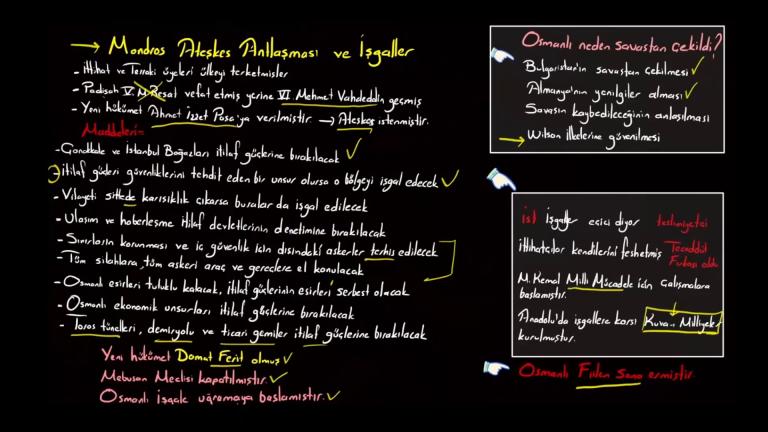 → Mondros Ateşkes Antlaşması ve İşgaller
- İttihat ve Terakki üyeleri ülkeyi terketmişler
- Padişah V. M. Reşat vefat etmiş yerine VI Mehmet Vahdeddin geçmiş
- Yeni hükümet Ahmet İzzet Paşa'ya verilmiştir. → Ateşkes istenmiştir.
Maddeleri=
- Çanakkale ve İstanbul Boğazları itilaf güçlerine bırakılacak ✓
- itilaf güçleri güvenliklerini tehdit eden bir unsur olursa o bölgeyi işgal edecek ✓
- Vilayeti sittede karışıklık çıkarsa buralar da işgal edilecek
- Ulaşım ve haberleşme itilaf devletlerinin denetimine bırakılacak
- Sınırların korunması ve iç güvenlik için dışındaki askerler terhis edilecek
- Tüm silahlara, tüm askeri araç ve gereçlere el konulacak
- Osmanlı esirleri tutuklu kalacak, itilaf güçlerinin esirleri serbest olacak
- Osmanlı ekonomik unsurları itilaf güçlerine bırakılacak
- Toros tünelleri, demiryolu ve ticari gemiler itilaf güçlerine bırakılacak
Yeni hükümet Damat Ferit olmuş ✓
Mebusan Meclisi kapatılmıştır. ✓
Osmanlı işgale uğramaya başlamıştır. ✓
Osmanlı neden savaştan çekildi?
Bulgaristan'ın savaştan çekilmesi ✓
Almanya'nın yenilgiler alması ✓
Savaşın kaybedileceğinin anlaşılması
→ Wilson ilkelerine güvenilmesi
İst İşgaller geçici diyor teslimiyetçi
İttihatçılar kendilerini feshetmiş Teceddüt
Fırkası oldu
M. Kemal Milli Mücadele için çalışmalara
başlamıştır.
Anadolu'da işgallere karşı Kuva-i Milliyeler
kurulmuştur.
Osmanlı Fiilen Sona ermiştir.